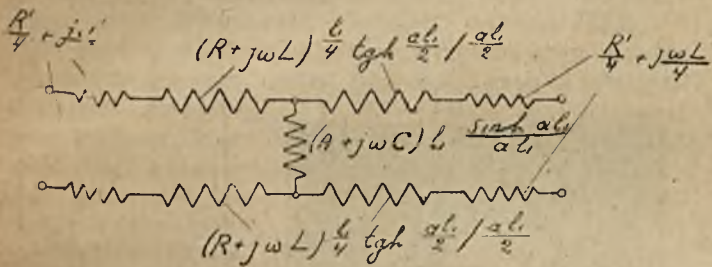 R'/4 + j
(R+jωL) l₁/4 tgh al₁/2 / al₁/2
R'/4 + jωL/4
(A+jωC) l₁ sinh al₁/al₁
(R+jωL) l₁/4 tgh al₁/2 / al₁/2